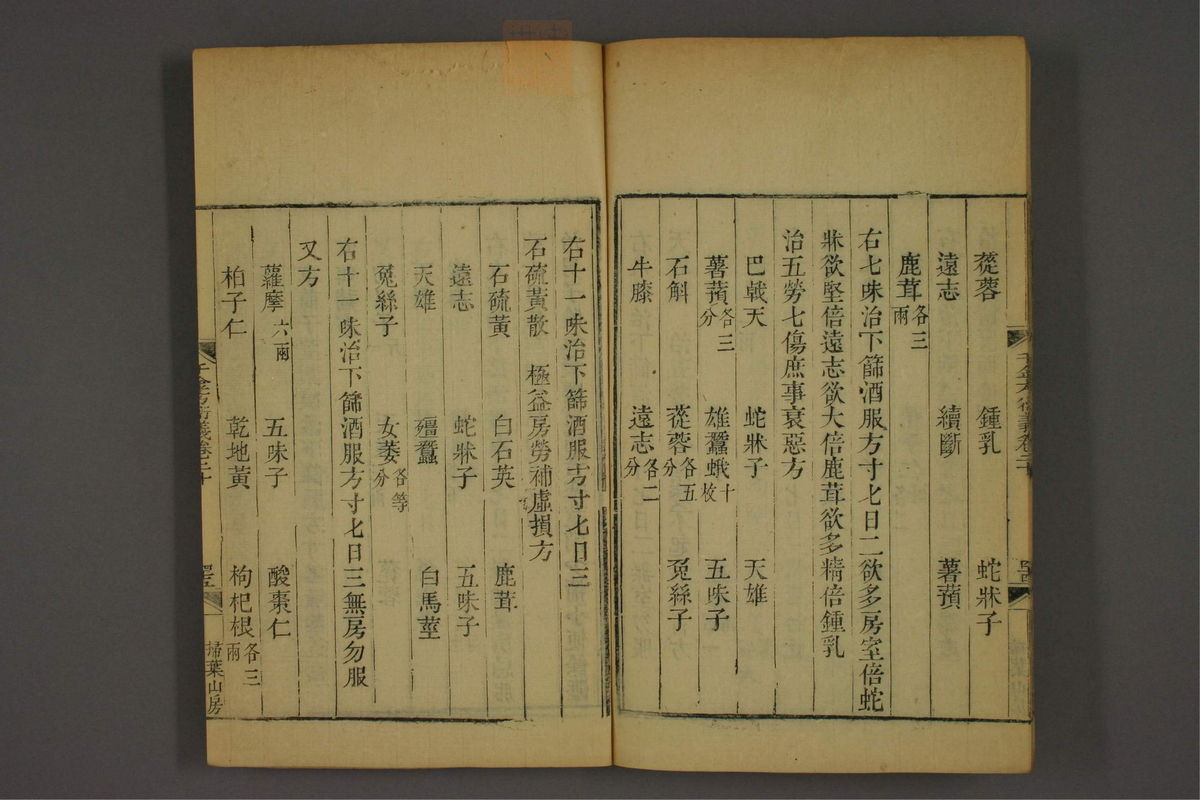 蓯蓉 鍾乳 蛇牀子
遠志 續斷 薯蕷
鹿茸各三兩
右七味治下篩酒服方寸匕日二欲多房室倍蛇
牀欲堅倍遠志欲大倍鹿茸欲多精倍鍾乳
治五勞七傷庶事衰惡方
巴戟天 蛇牀子 天雄
薯蕷各三分 雄蠶蛾十枚 五味子
石斛 蓯蓉各五分 兎絲子
牛膝 遠志各二分
右十一味治下篩酒服方寸匕日三
石硫黃散 極益房勞補虛損方
石硫黃 白石英 鹿茸
遠志 蛇牀子 五味子
天雄 殭蠶 白馬莖
兎絲子 女萎各等分
右十一味治下篩酒服方寸匕日三無房勿服
又方
蘿摩六兩 五味子 酸棗仁
柏子仁 乾地黃 枸杞根各三兩
千金方衍義卷二十
掃葉山房